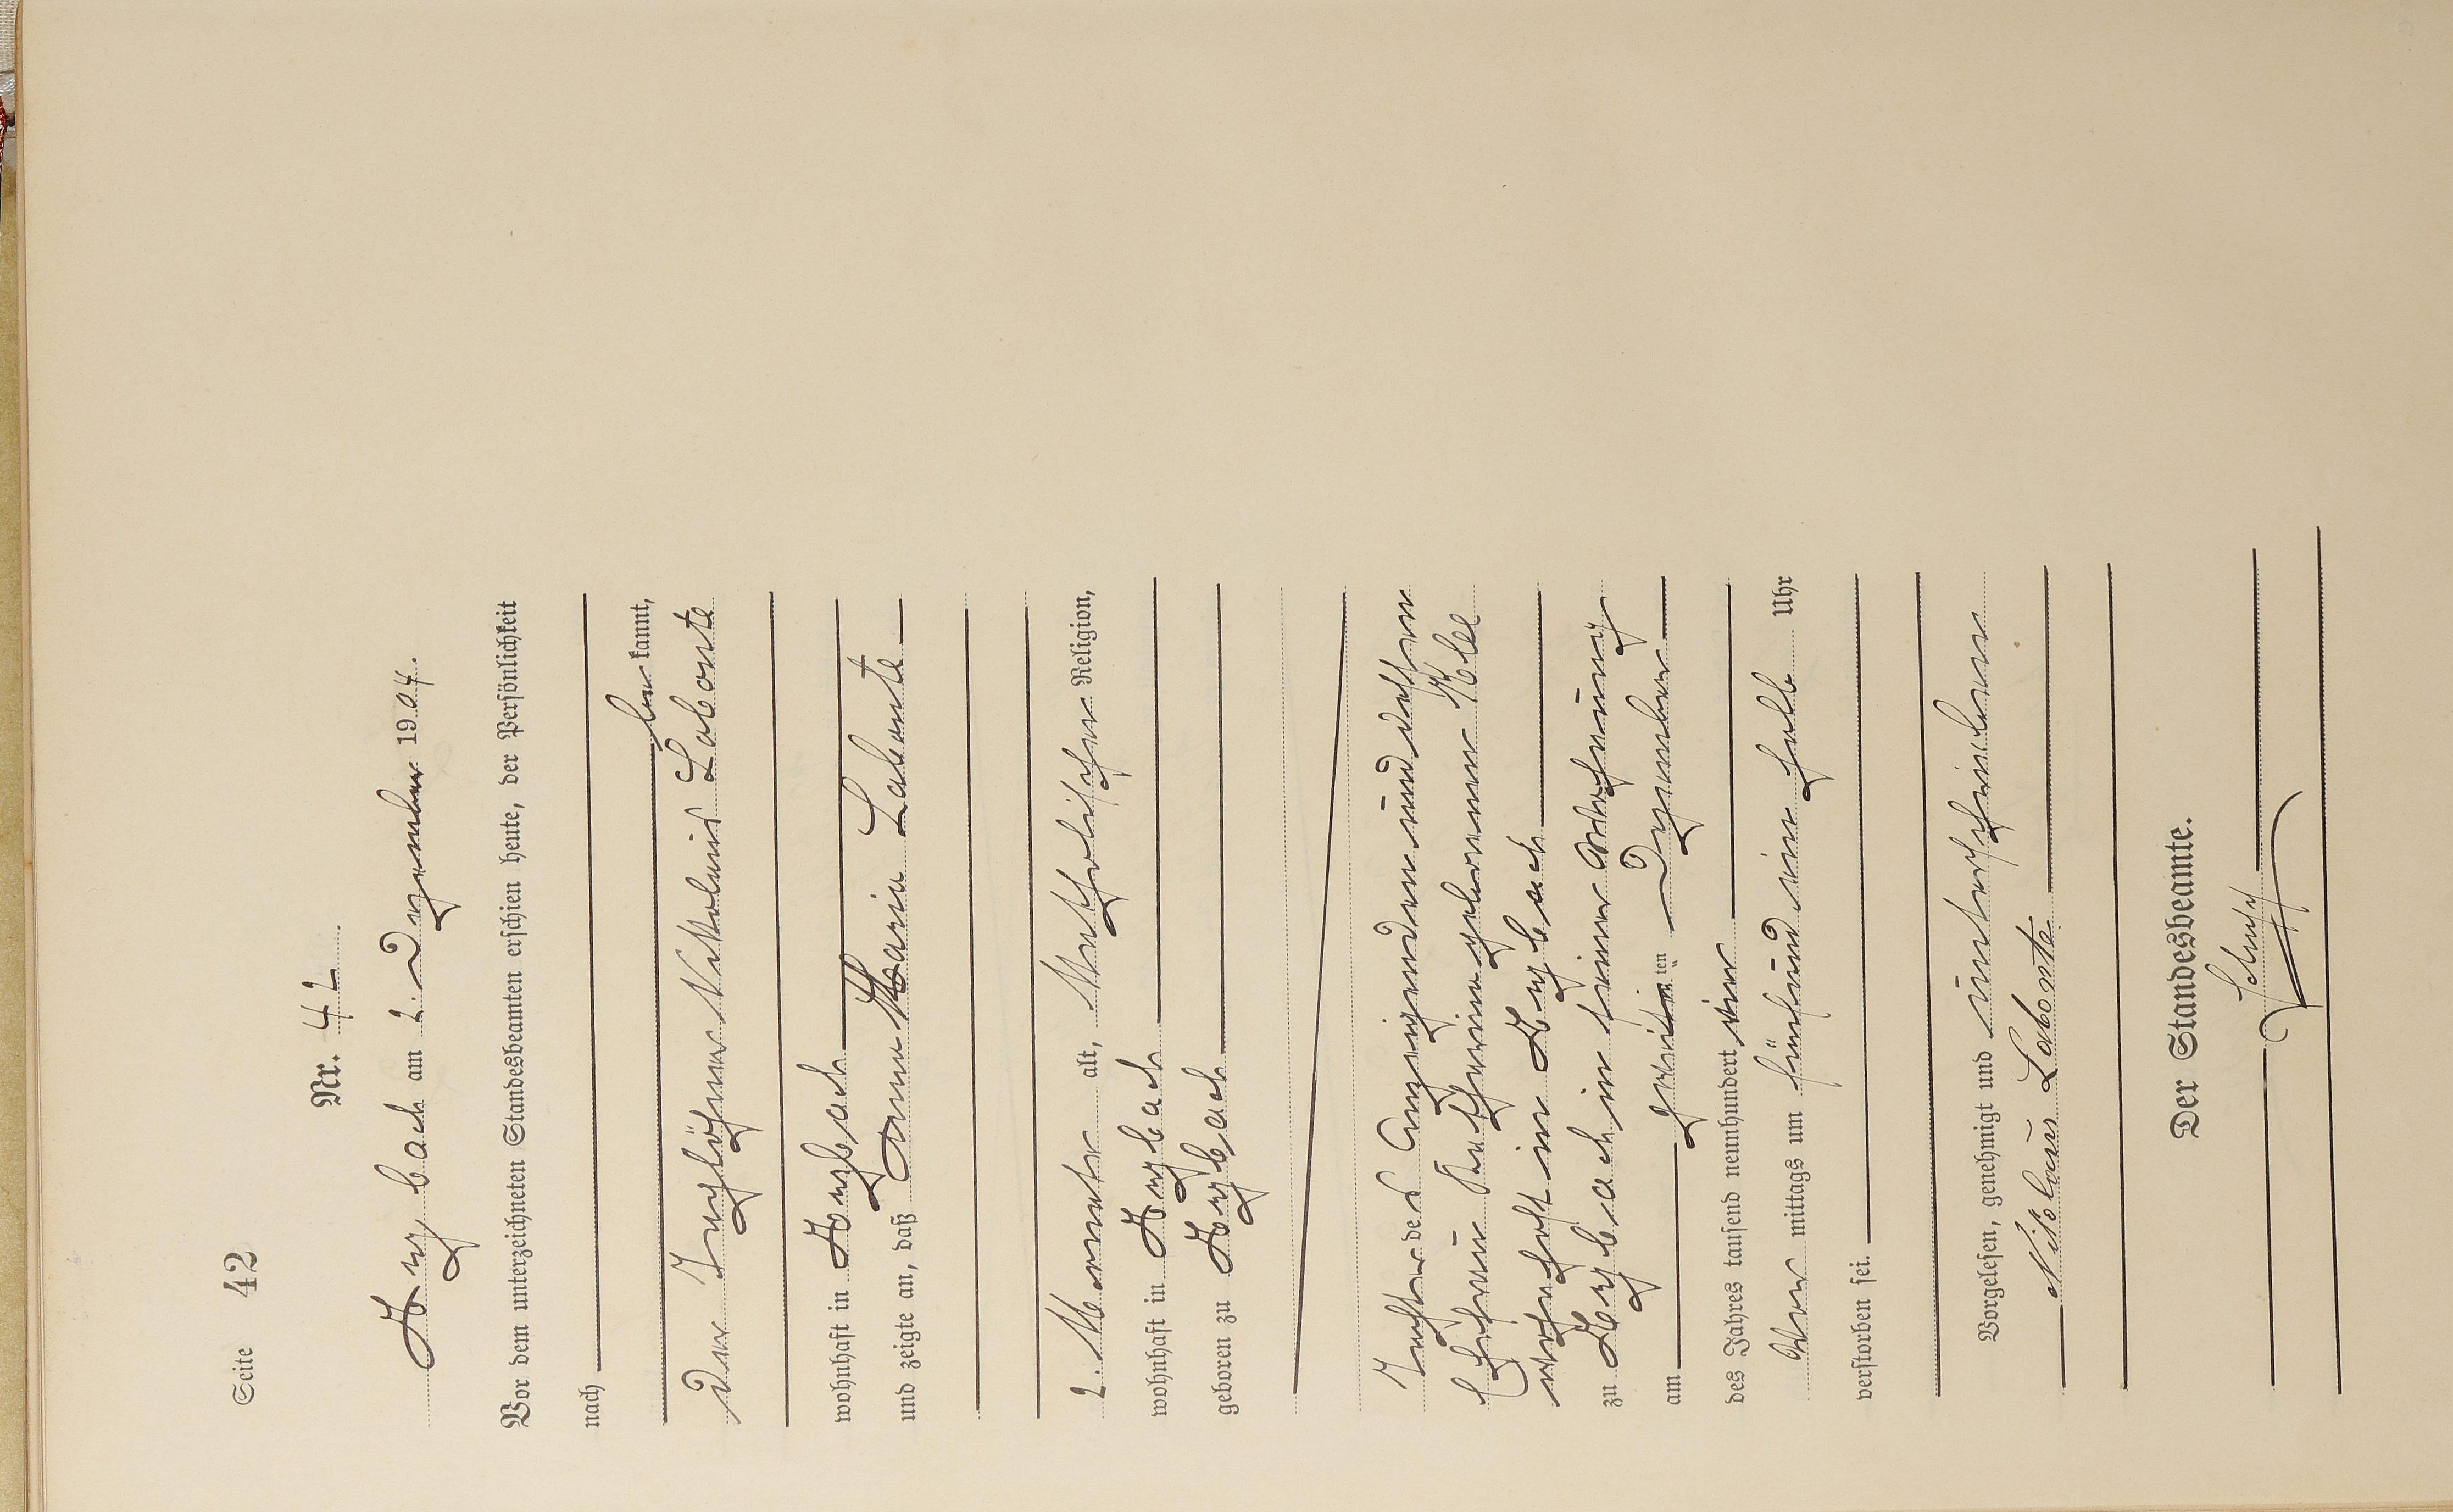 Seite 42
Nr. 42
Itzbach am 2. Dezember 1904.
Vor dem unterzeichneten Standesbeamten erschien heute, der Persönlichkeit
nach
be kannt,
der Tagelöhner Nikolaus Labonte
wohnhaft in Itzbach
und zeigte an, daß Anna Maria Labonte
2 Monate alt, katholischer Religion,
wohnhaft in Itzbach
geboren zu Itzbach
Tochter des Anzeigenden und dessen
Ehefrau Katharina geborene
wohnhaft in Itzbach
zu Itzbach in seiner Wohnung
am zweiten ten Dezember
des Jahres tausend neunhundert vier
Vor mittags um fünfundeinhalb Uhr
verstorben sei.
Vorgelesen, genehmigt und unterschrieben
Nikolaus Labonte
Der Standesbeamte.